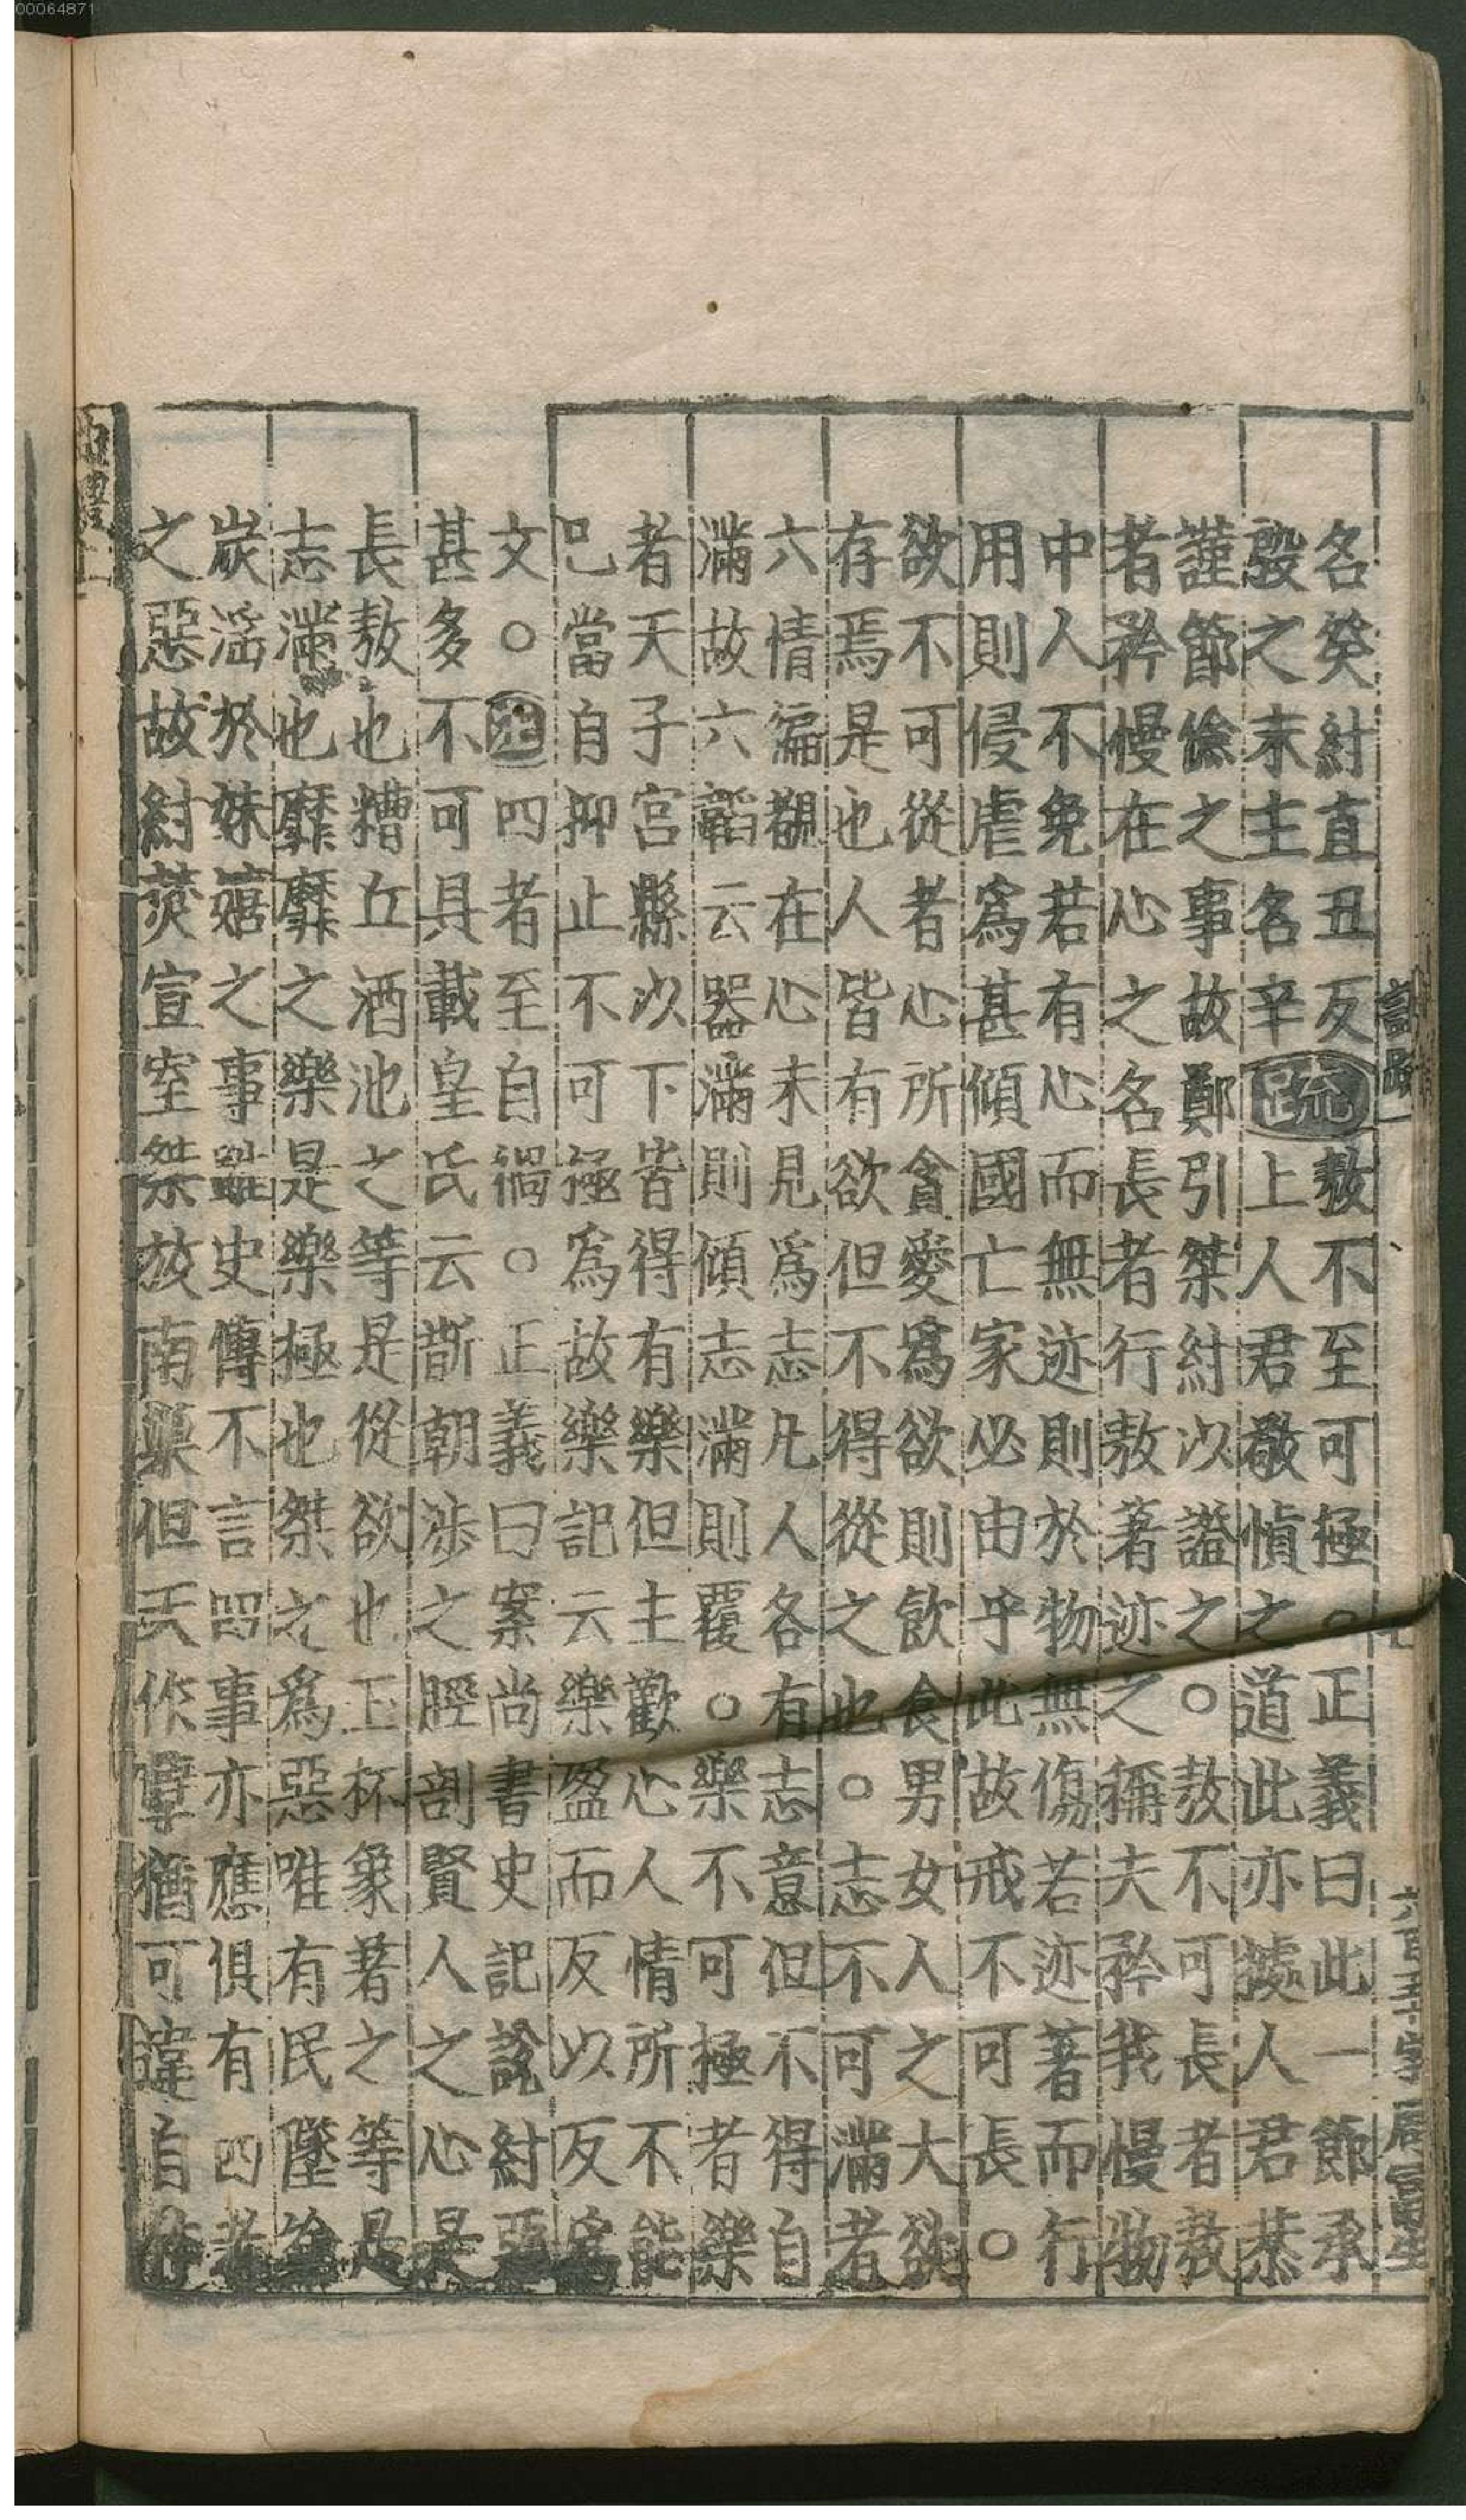 00064871
名癸紂直丑反敖不至可極○正義曰此一節承
殷之末主名辛疏上人君敬慎之道此亦據人君恭
謹節儉之事故鄭引桀紂以證之○敖不可長者敖
者矜慢在心之名長者行敖著迹之稱夫矜我慢物
中人不免若有心而無迹則於物無傷若迹著而行
用則侵虐為甚傾國亡家必由乎此故戒不可長○
欲不可從者心所貪愛為欲則飲食男女人之大欲
存焉是也人皆有欲但不得從之也○志不可滿者
六情徧覩在心未見為志凡人各有志意但不得自
滿故六韜云器滿則傾志滿則覆○樂不可極者樂
者天子宮縣以下皆得有樂但主歡心人情所不能
已當自抑止不可極為故樂記云樂盈而反以反為
文○注四者至自禍○正義曰案尚書史記說紂惡
甚多不可具載皇氏云斮朝涉之脛剖賢人之心是
長敖也糟丘酒池之等是從欲也玉杯象著之等是
志滿也靡靡之樂是樂極也桀之為惡唯有民墜塗
炭淫於妹嬉之事雖史傳不言四事亦應俱有四者
之惡故紂焚宣室桀放南巢但天作孽猶可違自作
記疏一
六百五十字
曲禮上